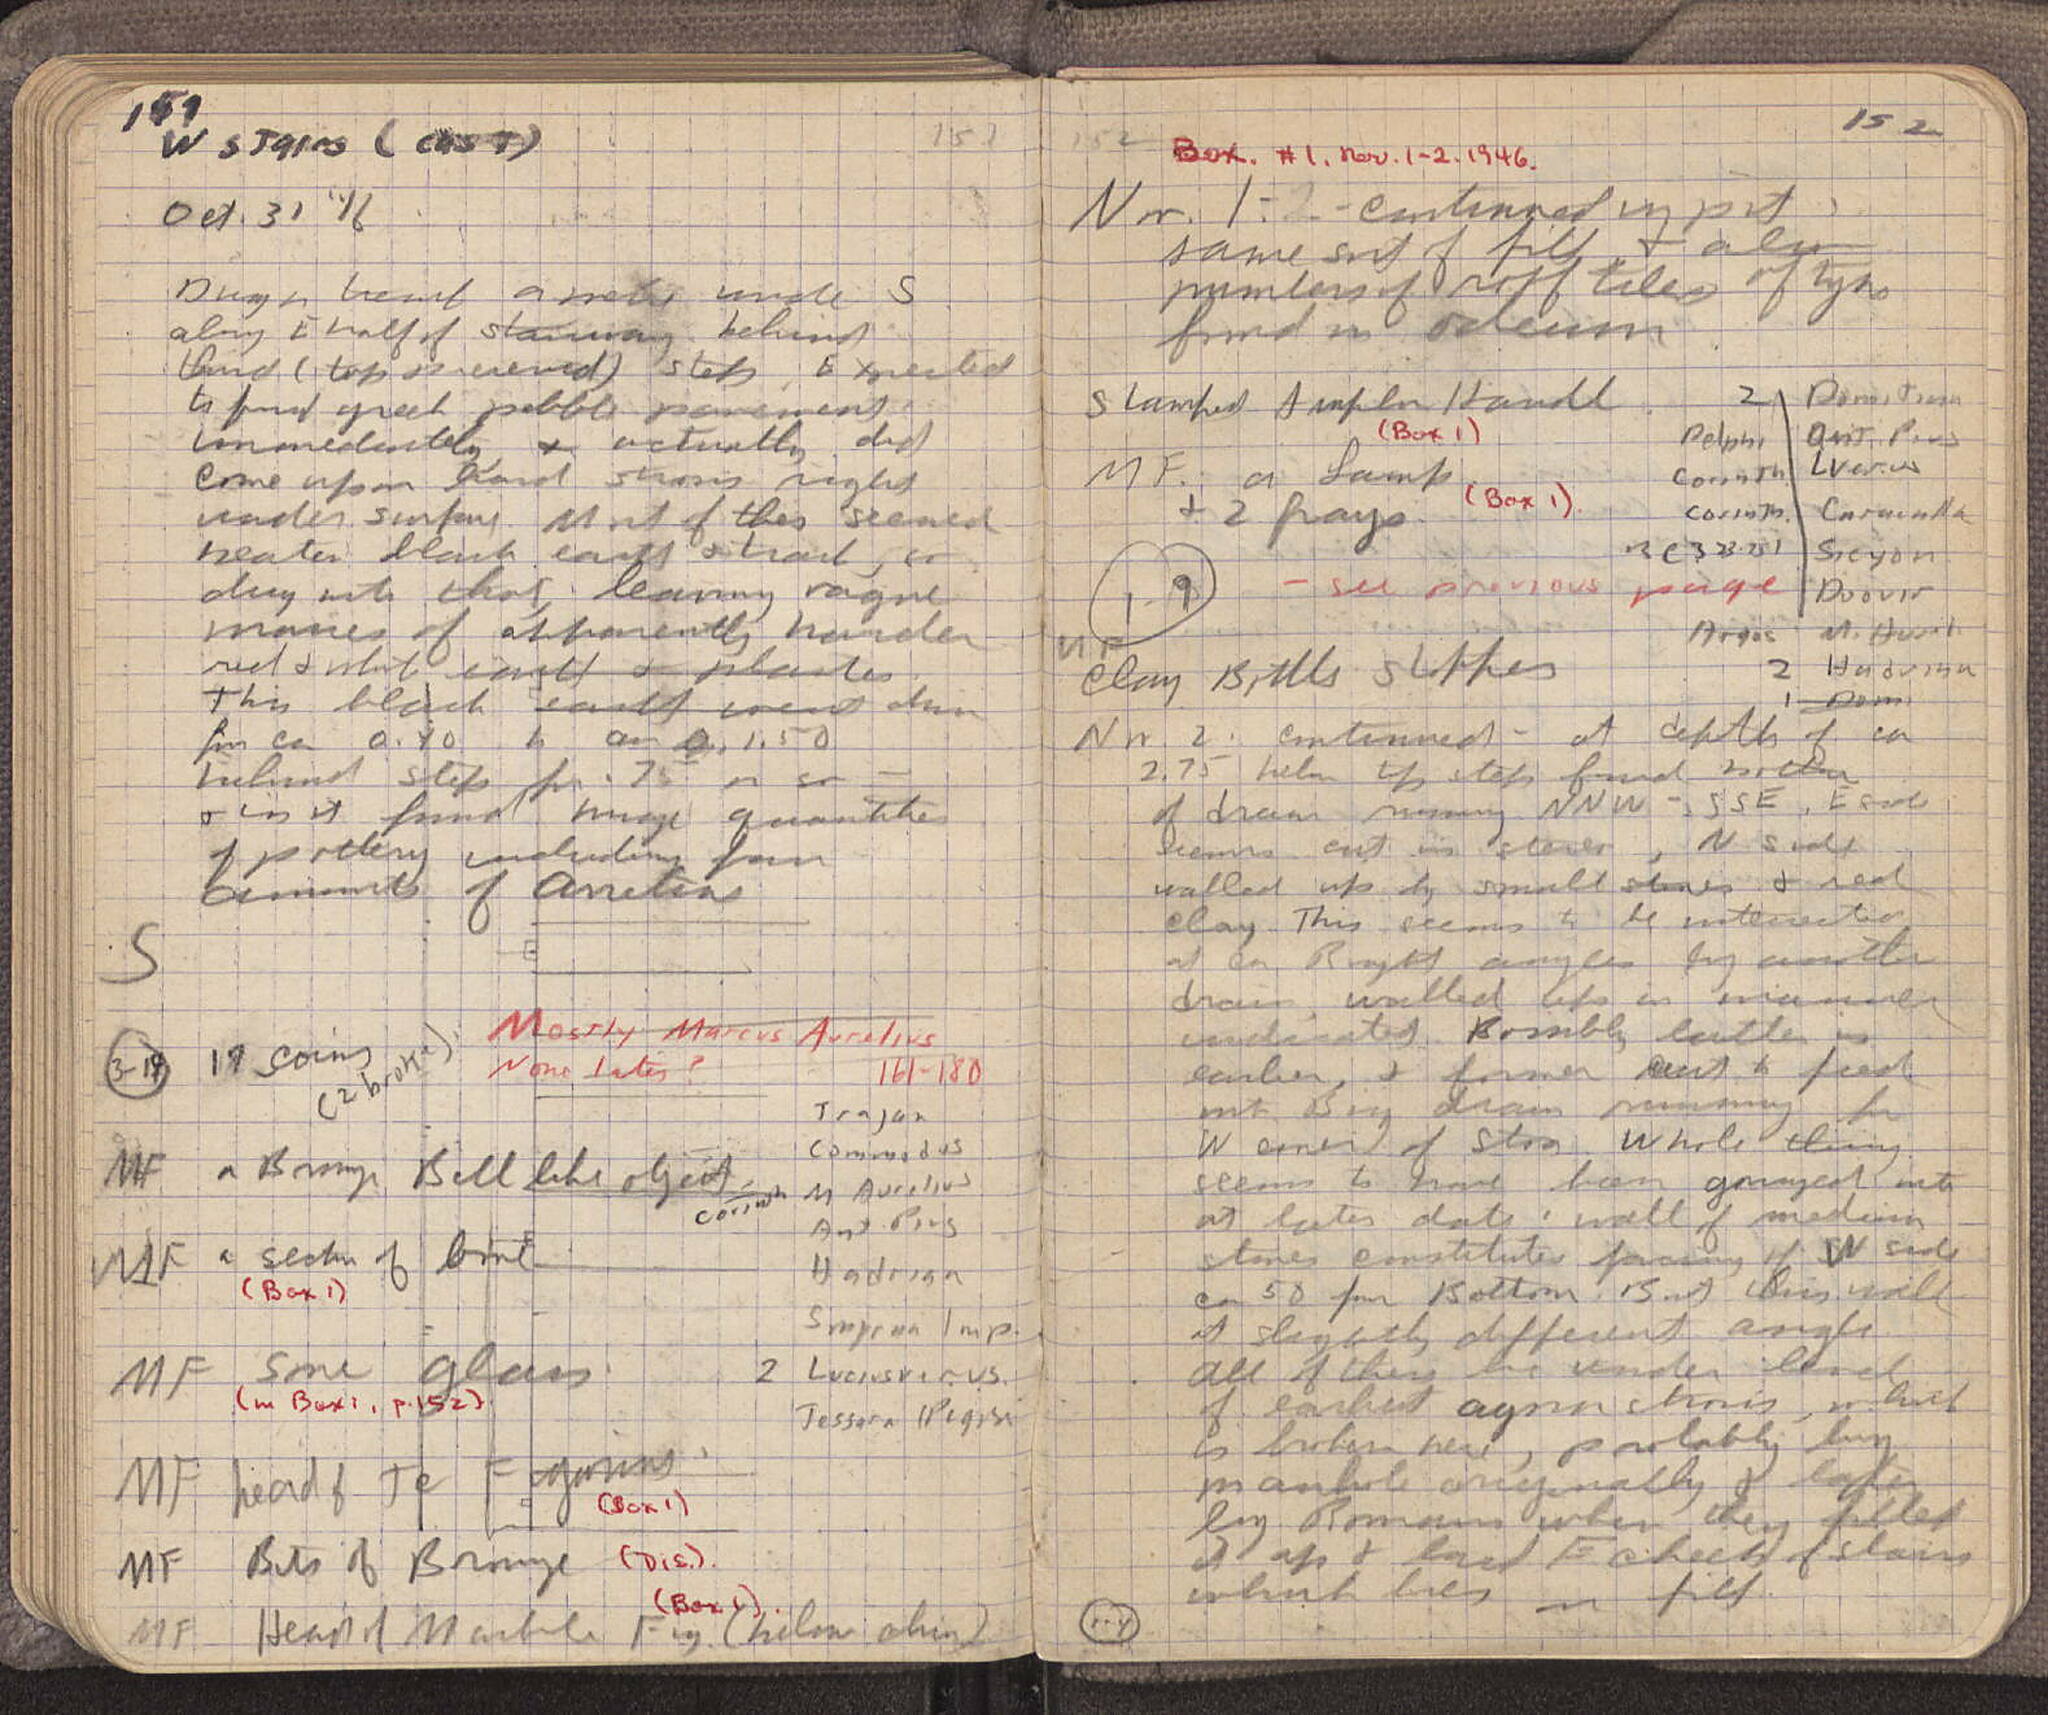 151
W stairs (east)
151
Oct. 31 '46
Dug in trench a meter wide S
along E half of stairway behind
third (top preserved) step. Expected
to find greek pebble pavement
immediately & actually did
come upon hard stratum right
under surface. Most of this seemed
neater black earth & hard, so
dug into that leaving vague
masses of apparently harder
red & white earth & plaster.
This black earth went down
for ca 0.40 to 1.50
behind steps for .75 m or so —
& in it found huge quantities
of pottery including fair
amounts of Arretine
S
3-19 17 coins (2 broken).
Mostly Marcus Aurelius
None later? 161-180
Trajan
Commodus
M Aurelius
Ant. Pius
Hadrian
Smyrna Imp.
2 Lucius Verus.
Tessera
MF a Bronze Bell like object
Corinth
MF a section of bone
(Box 1)
MF Some glass
(in Box 1, p. 152).
MF head of Tc Figurine
(Box 1)
MF Bits of Bronze (Dis.).
(Box 1).
MF Head of Marble Fig. (below chin)
152
152
Box. #1. Nov. 1-2. 1946.
Nov. 1-2 - continued in pit,
same sort of fill & also
numbers of roof tiles of type
found in odeum
Stamped Amphora Handle
(Box 1)
MF. a Lamp
+ 2 frags. (Box 1).
1-9 - see previous page
2 Domitian
Delphi Ant. Pius
Corinth L Verus
Corinth. Caracalla
Sicyon
Duovir
Argos
2 Hadrian
1 Dom.
MF
Clay Bottle stopper
Nov. 2. continued - at depth of ca
2.75 below top step found bottom
of drain running NNW - SSE, E side
seems cut in stereo, N side
walled up by small stones & red
clay. This seems to be intersected
at ca Right angles by another
drain walled up in manner
indicated. Possibly latter is
earlier, & former cut to feed
into Big drain running for
W corner of Stoa. Whole thing
seems to have been gouged into
at later date: wall of medium
stones constitutes facing of SW side
ca 50 from Bottom. But this wall
at slightly different angle
All of these lie under level
of earliest agora stratum, which
is broken here, probably by
manhole originally & later
by Romans when they filled
it up & laid E cheek of stairs
which lies in fill.